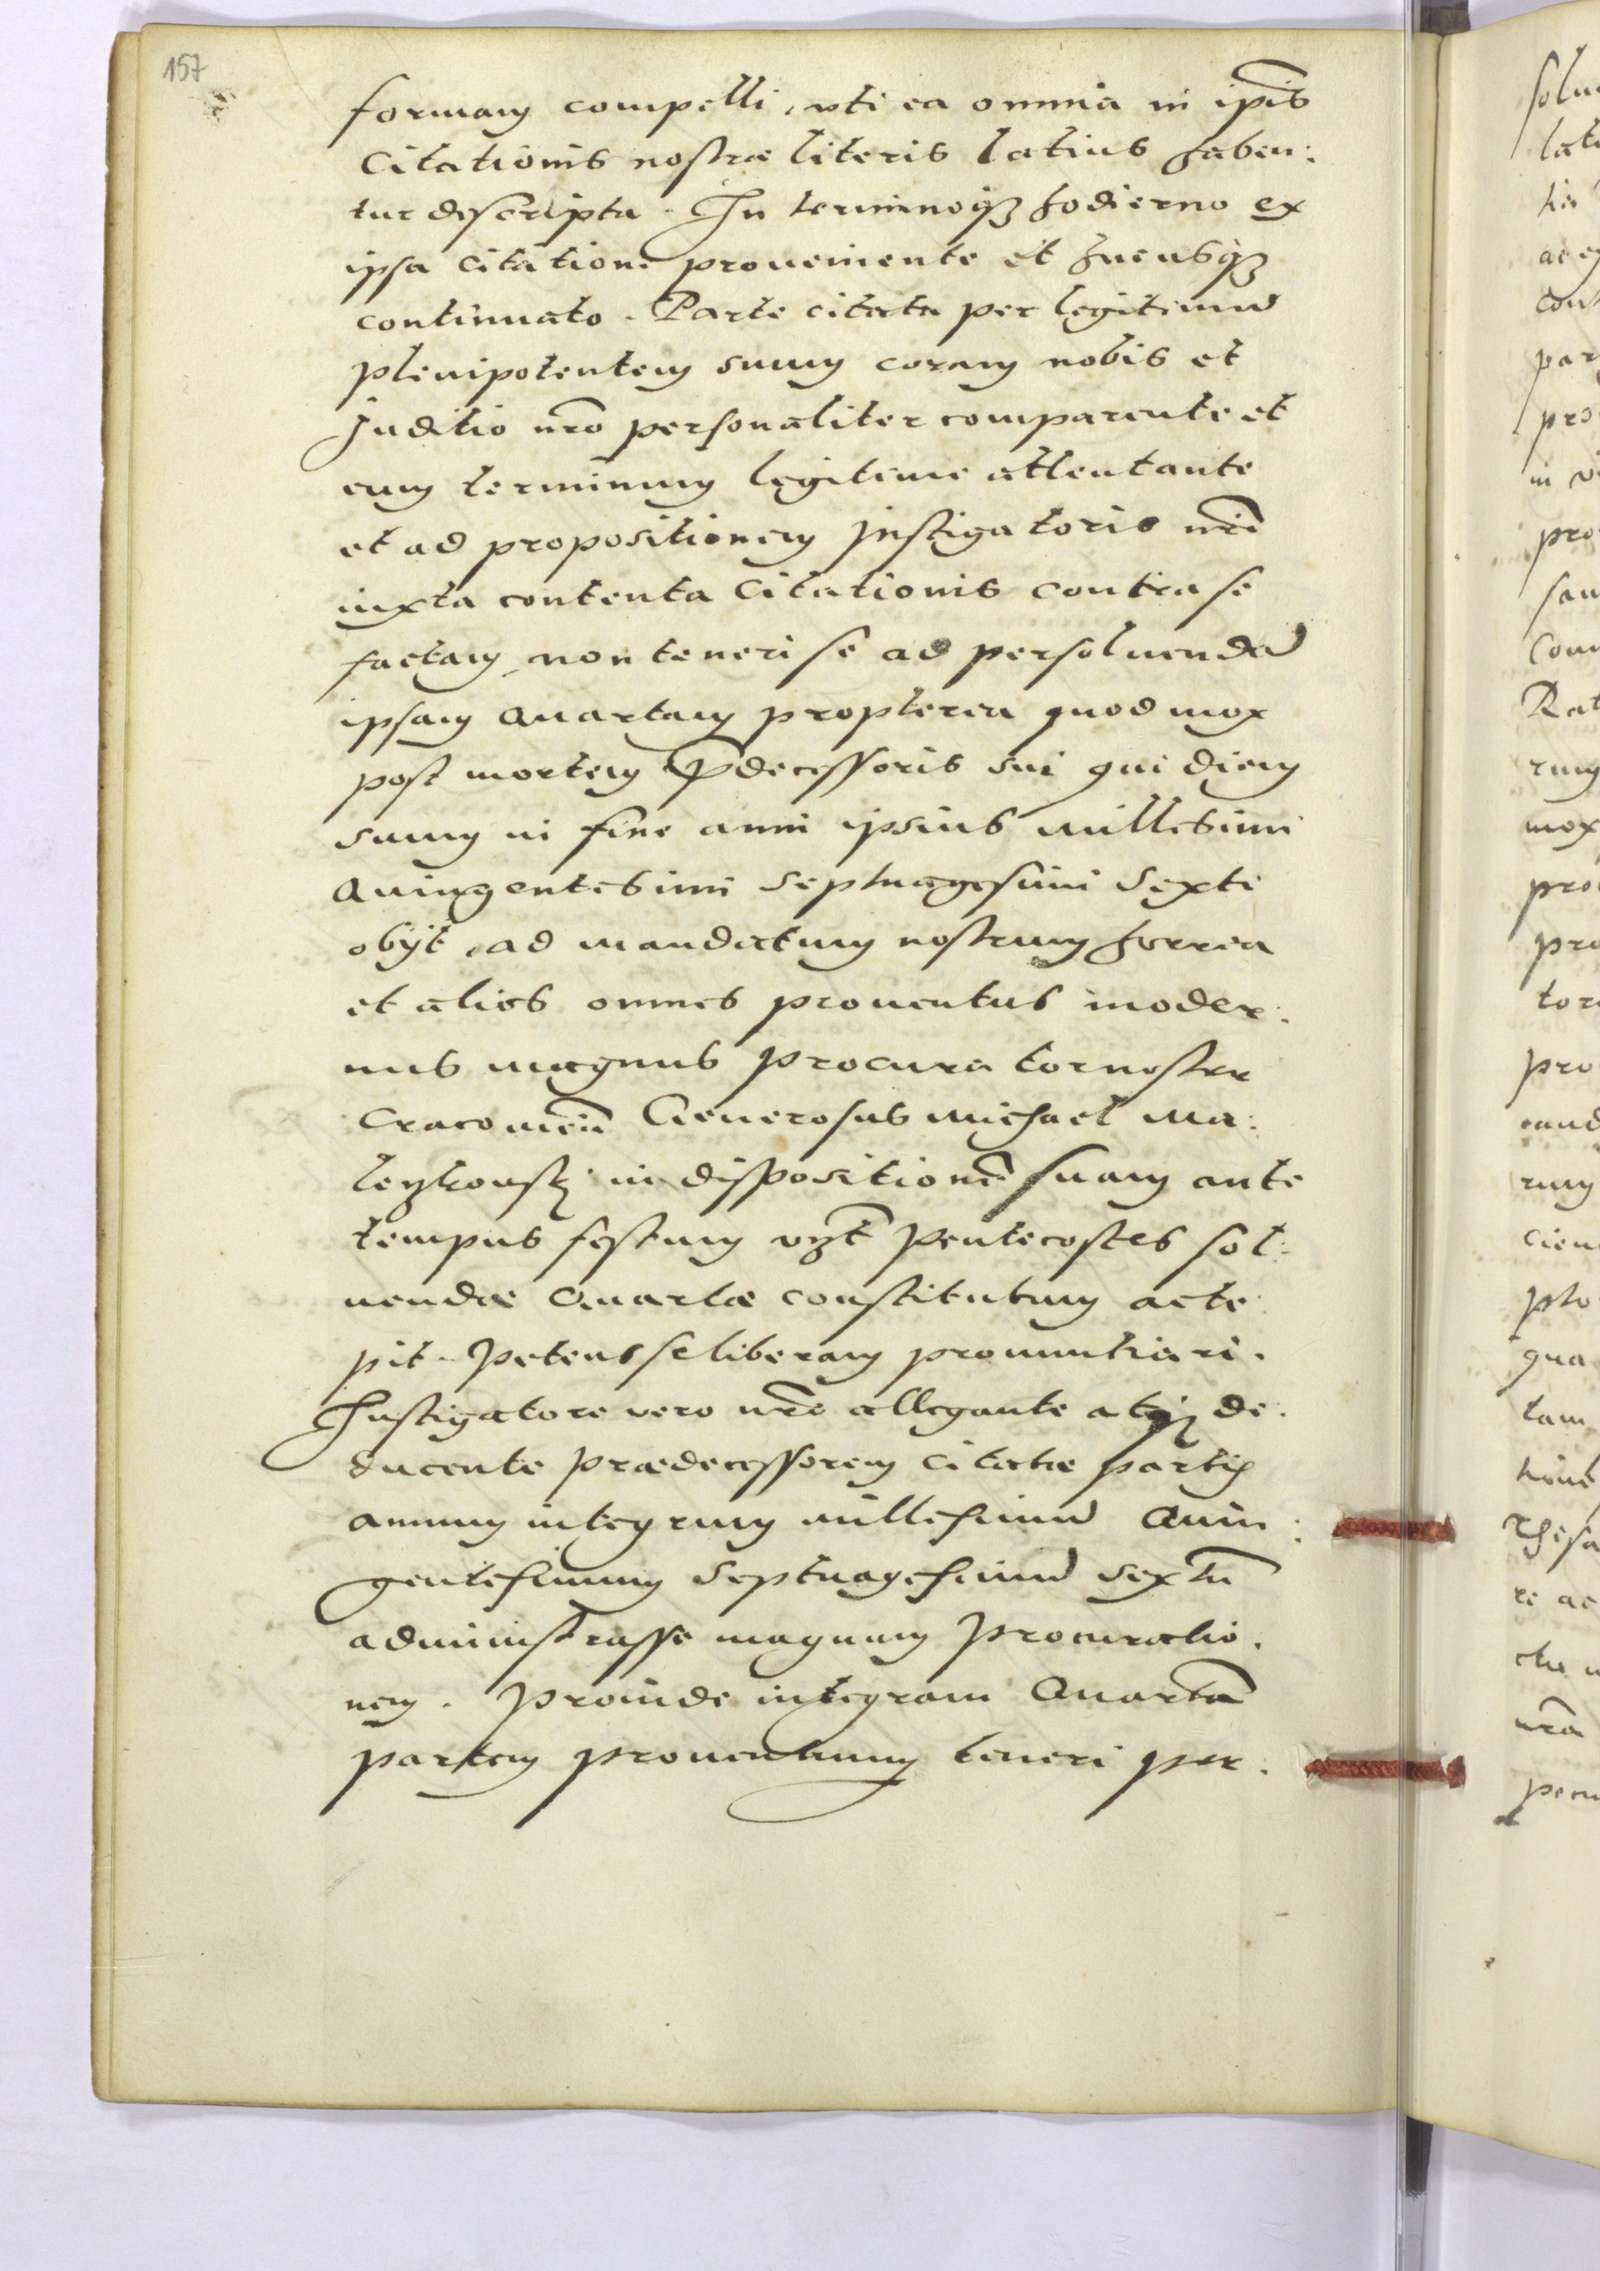 157
formam compelli, uti ea omnia in ip̄is
Citationis nostræ literis latius haben:
tur descripta. In terminoq₃ hodierno ex
ipsa citatione proueniente et hucusq₃
continuato. Parte citata per legitimū
plenipotentem suum coram nobis et
Juditio nr̄o personaliter comparente et
eum terminum legitime attentante
et ad propositionem Instigatoris nr̄i
iuxta contenta Citationis contra se
factam, non teneri se ad persoluendā
ipsam Quartam propterea quod mox
post mortem p̄decessoris sui qui diem
suum in fine anni ipsius millesimi
Quingentesimi Septuagesimi Sexti
obijt, ad mandatum nostrum horrea
et alios omnes prouentus moder:
nus magnus Procurator noster
Cracouień Generosus Michael Ma:
leyhousky in dispositionē suam ante
tempus festum vz̄t Pentecostes sol:
uendæ Quartæ constitutum acce:
pit. Petens se liberam pronuntiari.
Instigatore vero nr̄o allegante atq₃ de:
ducente prædecessorem Citatæ partis
annum integrum millesimū Quin:
gentesimum Septuagesimū sextū
administrasse magnam Procuratio:
nem. Proinde integram Quartā
partem prouentuum teneri per: